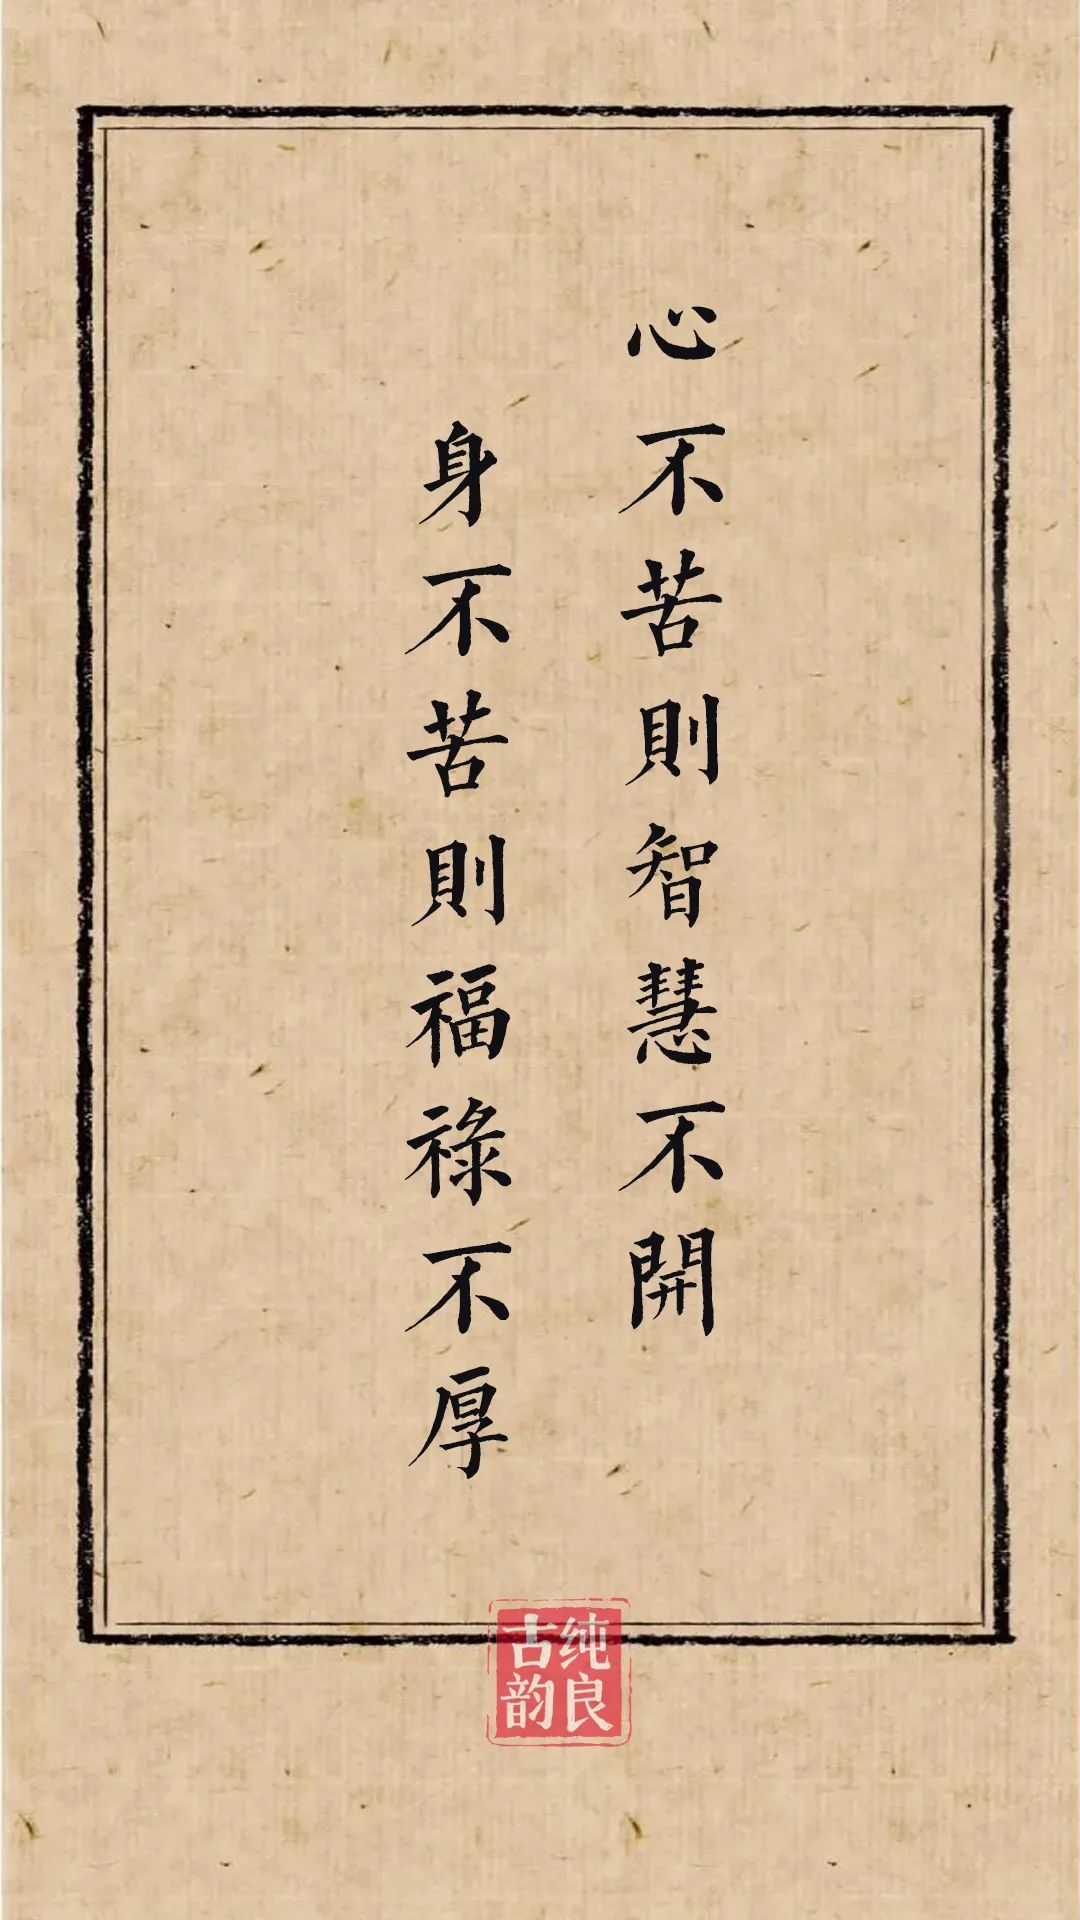 心不苦則智慧不開
身不苦則福祿不厚
纯良
古韵